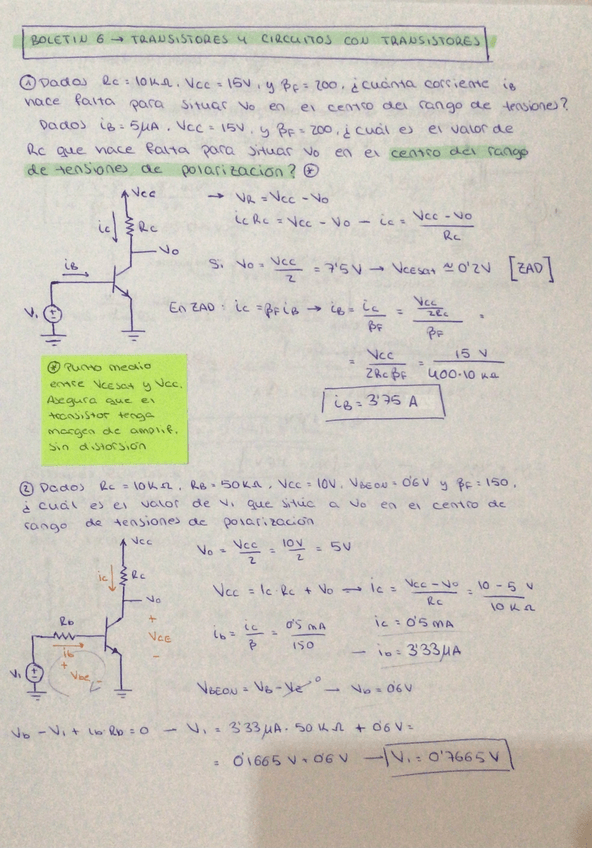 BOLETIN 6 → TRANSISTORES Y CIRCUITOS CON TRANSISTORES
① Dados Rc = 10KΩ, Vcc = 15V, y βF = 200, ¿cuánta corriente iB
hace falta para situar Vo en el centro del rango de tensiones?
Dados iB = 5μA, Vcc = 15V, y βF = 200, ¿cuál es el valor de
Rc que hace falta para situar Vo en el centro del rango
de tensiones de polarización? ⊛
Vcc
ic
Rc
Vo
iB
Vi
→ VR = Vcc - Vo
ic Rc = Vcc - Vo — ic = Vcc - Vo / Rc
Si Vo = Vcc / 2 = 7'5V → VCEsat ≃ 0'2V [ZAD]
En ZAD: ic = βF iB → iB = ic / βF = Vcc / 2Rc / βF =
= Vcc / 2RcβF = 15 V / 400·10 KΩ
iB = 3'75 A
⊛ Punto medio
entre VCEsat y Vcc.
Asegura que el
transistor tenga
margen de amplif.
sin distorsión
② Dados Rc = 10KΩ, RB = 50KΩ, Vcc = 10V, VBEON = 0'6V y βF = 150,
¿cuál es el valor de Vi que sitúa a Vo en el centro de
rango de tensiones de polarización
Vcc
ic
Rc
Vo
Rb
ib
+
VCE
-
+
Vbe
-
Vi
Vo = Vcc / 2 = 10V / 2 = 5V
Vcc = Ic · Rc + Vo → Ic = Vcc - Vo / Rc = 10 - 5 V / 10 KΩ
ib = ic / β = 0'5 mA / 150
ic = 0'5 mA
— ib = 3'33 μA
VBEON = Vb - Ve 0 → Vb = 0'6V
Vb - Vi + ib Rb = 0 — Vi = 3'33 μA · 50 KΩ + 0'6V =
= 0'1665 V + 0'6V → Vi = 0'7665 V